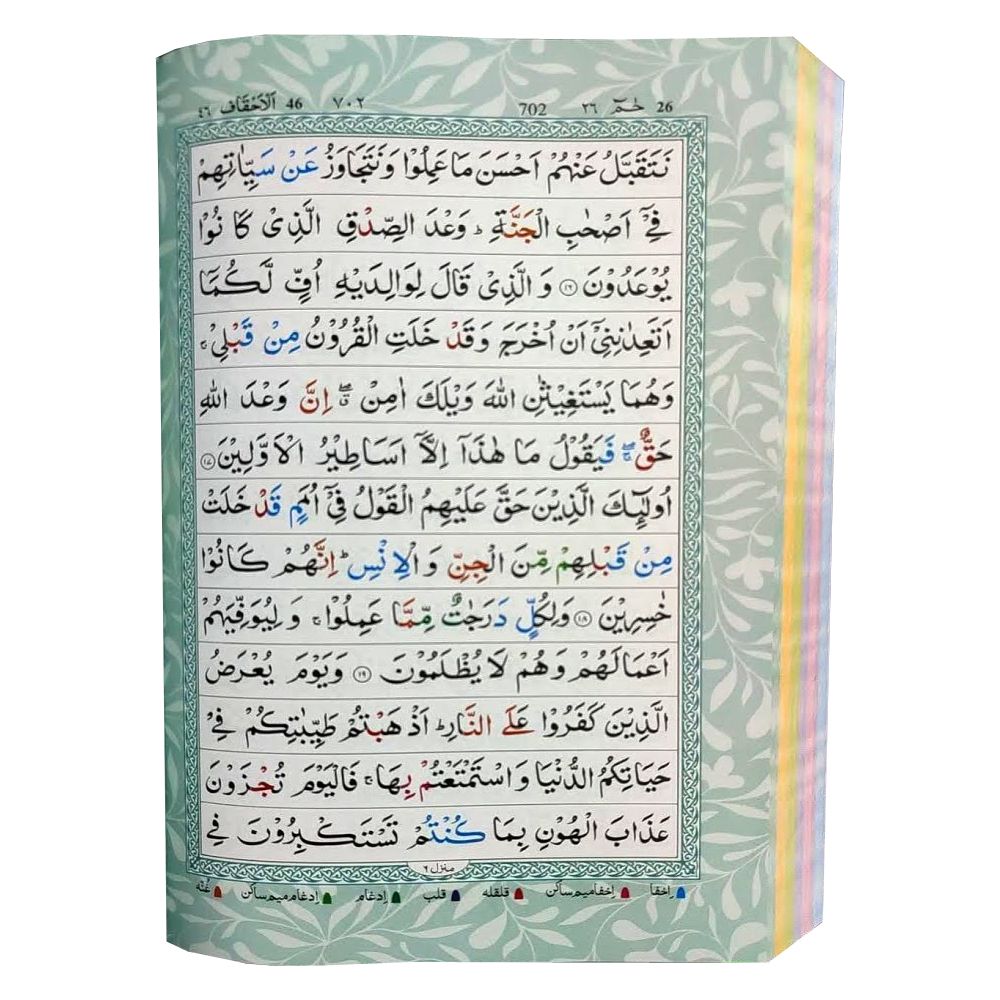 26 حٰمٓ ٢٦ 702 ٧٠٢ 46 اَلْاَحْقَاف ٤٦
نَتَقَبَّلُ عَنْهُمْ اَحْسَنَ مَا عَمِلُوْا وَنَتَجَاوَزُ عَنْ سَيِّاٰتِهِمْ
فِيْٓ اَصْحٰبِ الْجَنَّةِ ؕ وَعْدَ الصِّدْقِ الَّذِيْ كَانُوْا
يُوْعَدُوْنَ ۝۱۶ وَالَّذِيْ قَالَ لِوَالِدَيْهِ اُفٍّ لَّكُمَآ
اَتَعِدٰنِنِيْٓ اَنْ اُخْرَجَ وَقَدْ خَلَتِ الْقُرُوْنُ مِنْ قَبْلِيْ ۚ
وَهُمَا يَسْتَغِيْثٰنِ اللّٰهَ وَيْلَكَ اٰمِنْ ۖ اِنَّ وَعْدَ اللّٰهِ
حَقٌّ ۖ فَيَقُوْلُ مَا هٰذَآ اِلَّآ اَسَاطِيْرُ الْاَوَّلِيْنَ ۝۱۷
اُولٰٓئِكَ الَّذِيْنَ حَقَّ عَلَيْهِمُ الْقَوْلُ فِيْٓ اُمَمٍ قَدْ خَلَتْ
مِنْ قَبْلِهِمْ مِّنَ الْجِنِّ وَالْاِنْسِ ؕ اِنَّهُمْ كَانُوْا
خٰسِرِيْنَ ۝۱۸ وَلِكُلٍّ دَرَجٰتٌ مِّمَّا عَمِلُوْا ۚ وَلِيُوَفِّيَهُمْ
اَعْمَالَهُمْ وَهُمْ لَا يُظْلَمُوْنَ ۝۱۹ وَيَوْمَ يُعْرَضُ
الَّذِيْنَ كَفَرُوْا عَلَى النَّارِ ؕ اَذْهَبْتُمْ طَيِّبٰتِكُمْ فِيْ
حَيَاتِكُمُ الدُّنْيَا وَاسْتَمْتَعْتُمْ بِهَا ۚ فَالْيَوْمَ تُجْزَوْنَ
عَذَابَ الْهُوْنِ بِمَا كُنْتُمْ تَسْتَكْبِرُوْنَ فِي
منزل ٦
اِخفا اِخفامیم ساکن قلقله قلب اِدغام اِدغام میم ساکن غُنّه